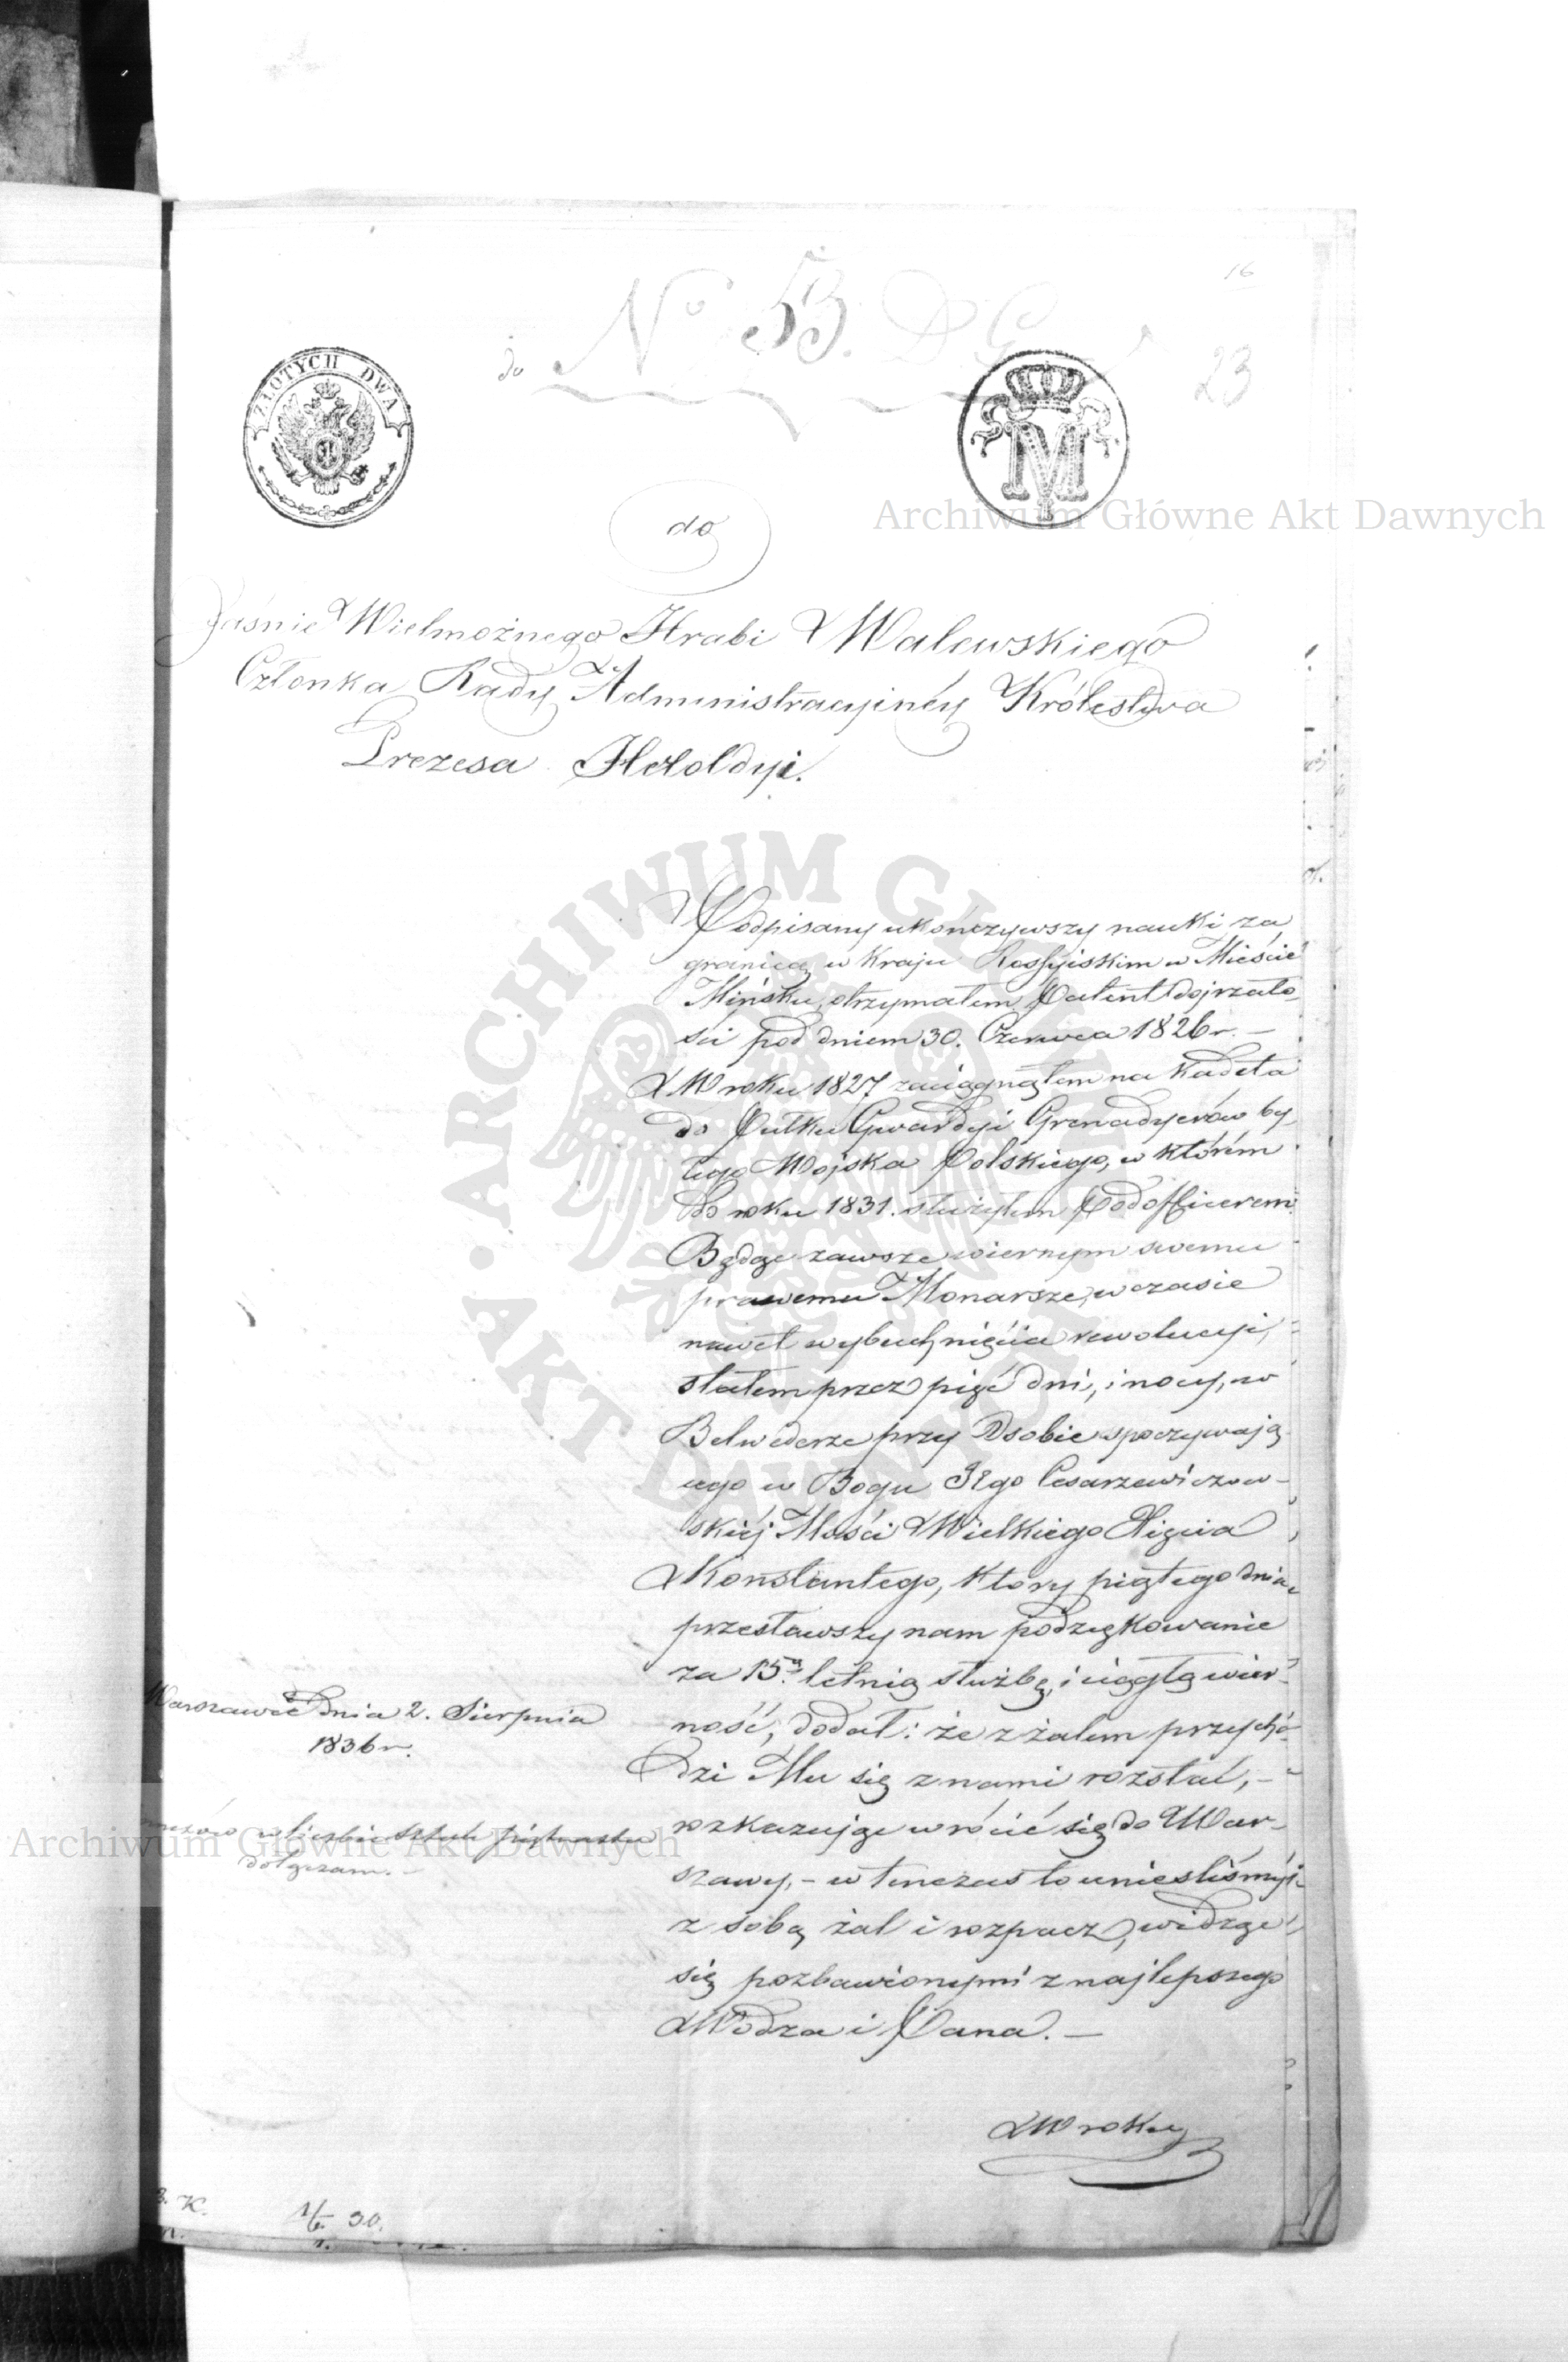 16
do No 53. D G
23
ZŁOTYCH DWA
M
Archiwum Główne Akt Dawnych
do
Jaśnie Wielmożnego Hrabi Walewskiego
Członka Rady Administracyinéy Królestwa
Prezesa Heroldyi.
ARCHIWUM GŁÓWNE AKT DAWNYCH
Podpisany ukończywszy nauki za
granicą w Kraju Rossyiskim w Mieście
Mińsku, otrzymałem Patent dojrzało
ści pod dniem 30. Czerwca 1826 r. —
W roku 1827 zaciągnąłem na Kadeta
do Pułku Gwardyi Grenadyerów by
łego Wojska Polskiego, w którém
do roku 1831. służyłem Podofficerem.
Będąc zawsze wiernym swemu
prawemu Monarsze, w czasie
nawet wybuchnięcia rewolucyi,
stałem przez pięć dni, i nocy, w
Belwederze przy Osobie spoczywają
cego w Bogu Jego Cesarzewiczow-
skiéj Mości Wielkiego Xięcia
Konstantego, który piątego dnia
przesławszy nam podzękowanie
za 15. letnią służbę, i ciągłą wier-
ność, dodał: że z żalem przycho-
dzi Mu się z nami rozstać, –
rozkazując wrócić się do War-
szawy, – w tenczas to unieśliśmy
z sobą żal i rozpacz, widząc
się pozbawionymi z najlepszego
Wodza i Pana. —
W roku
Warszawie dnia 2. Sierpnia
1836 r.
w liczbie sztuk piętnastu
dołączam. –
Archiwum Główne Akt Dawnych
K.
30.